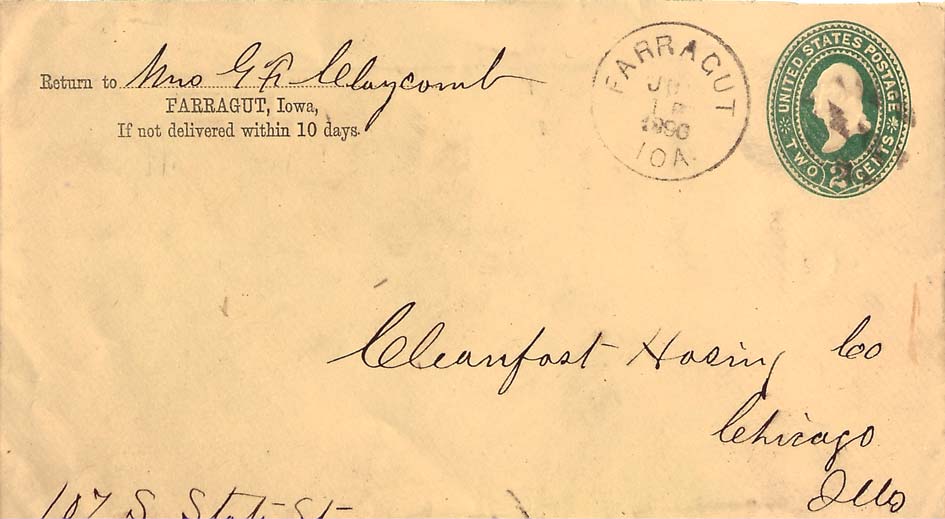 Return to Mrs G F Claycomb
FARRAGUT, Iowa,
If not delivered within 10 days.
FARRAGUT
18
1890
IOA.
UNITED STATES POSTAGE
TWO 2 CENTS
Cleanfast Hosiny Co
Chicago
Ills
107 S. State St